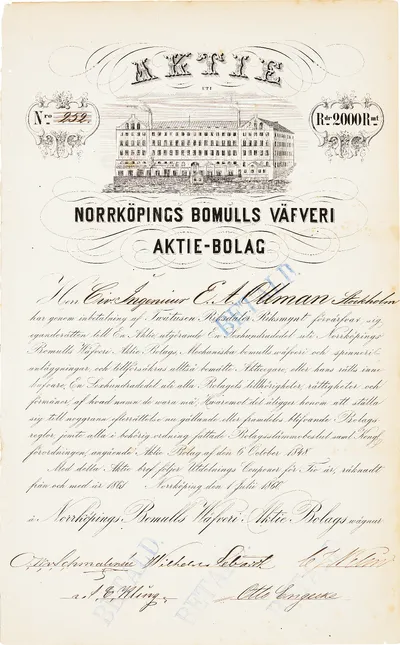 AKTIE
UTI
Nro 252.
Rdr 2000 Rmt
NORRKÖPINGS BOMULLS VÄFVERI
AKTIE-BOLAG
Herr Civ. Ingenieur E. A. Ollman Stockholm
har genom inbetalning af Tvåtusen Riksdaler Riksmynt förvärfvat sig
eganderätten till En Aktie utgörande En Sexhundradedel uti Norrköpings
Bomulls Väfveri Aktie Bolags Mechaniska bomulls väfveri och spinneri
anläggningar, och tillförsäkras alltså bemälte Aktieegare, eller hans rätts inne-
hafvare, En Sexhundradedel uti alla Bolagets tillhörigheter, rättigheter och
förmåner af hvad namn de vara må; Hvaremot det åligger honom att ställa
sig till noggrann efterrättelse nu gällande eller framdeles blifvande Bolags
reglor, jemte alla i behörig ordning fattade Bolagsstämmobeslut samt Kongl.
förordningen, angående Aktie Bolag af den 6 October 1848
Med detta Aktie bref följer Utdelnings Couponer för Tio år, räknadt
från och med år 1861. Norrköping den 1 Julii 1860
å Norrköpings Bomulls Väfveri Aktie Bolags vägnar
Wilhelm
E. Kling
Otto
BETALD.
BETALD.
BETALD.